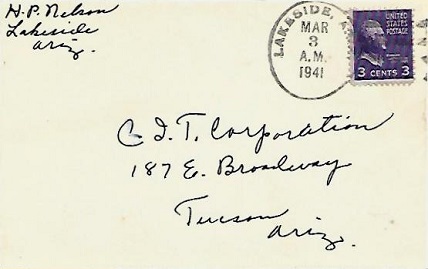 H. P. Nelson
Lakeside
Ariz.
LAKESIDE,
MAR
3
A.M.
1941
UNITED
STATES
POSTAGE
3 CENTS 3
C. I. T. Corporation
187 E. Broadway
Tucson
Ariz.